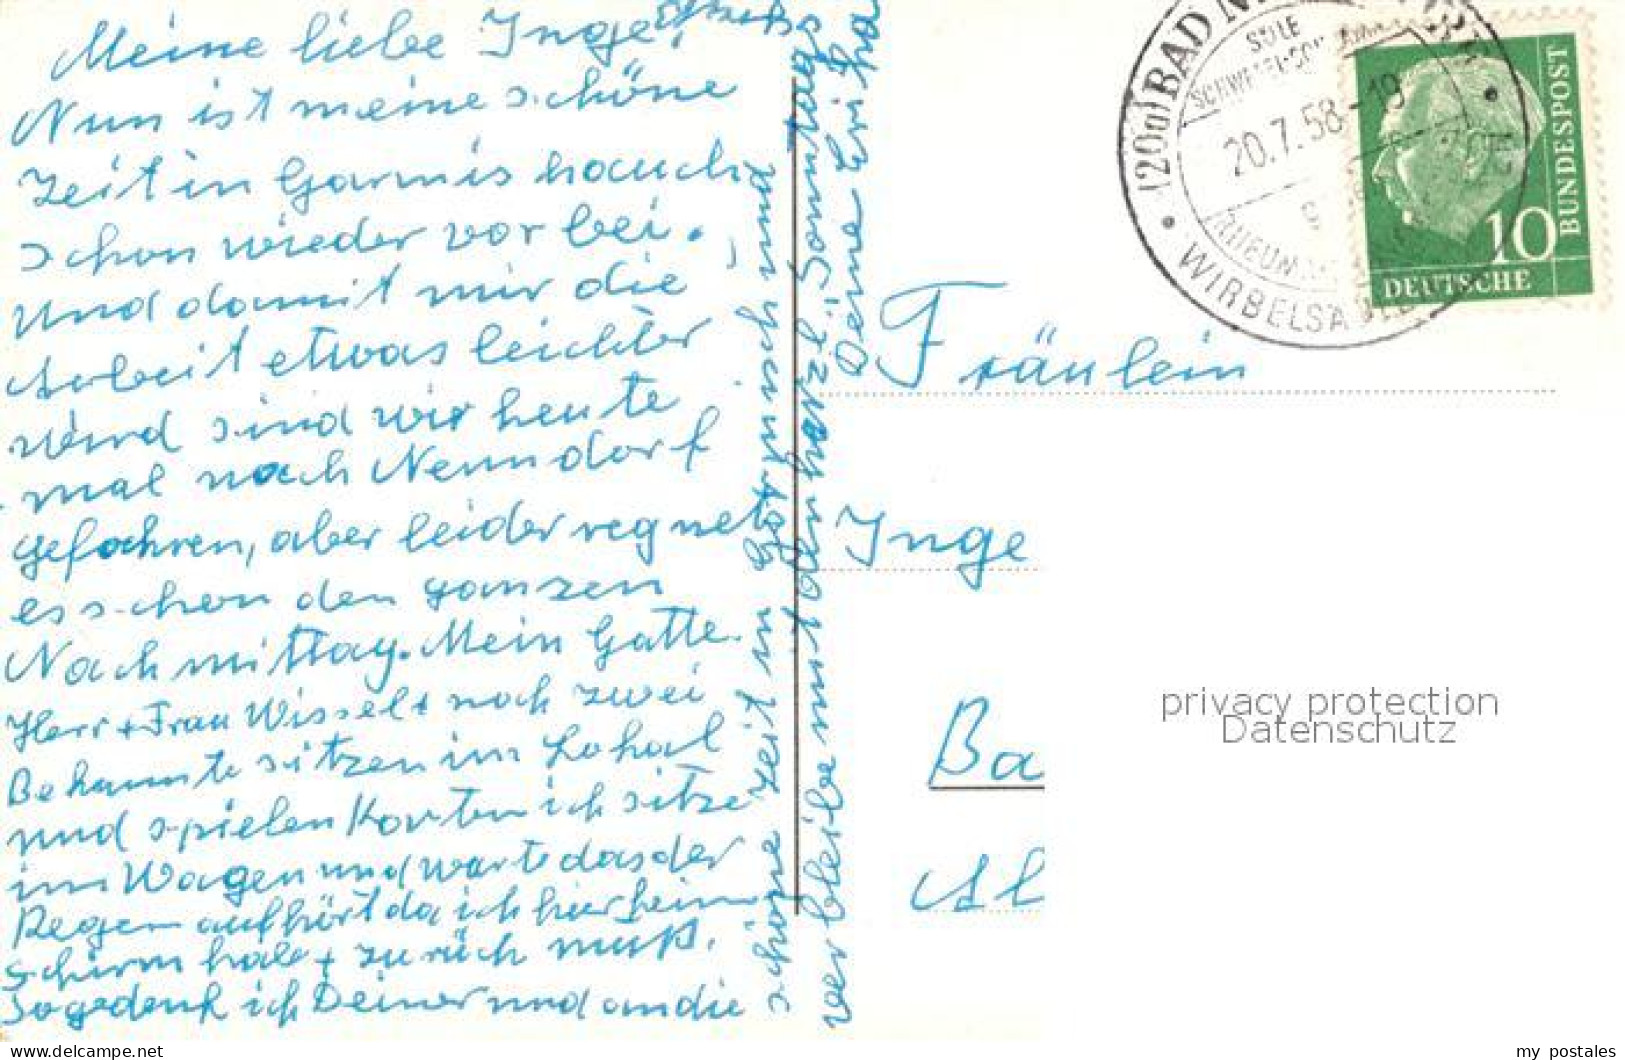 Meine liebe Inge!
Nun ist meine schöne
Zeit in Garmisch auch
schon wieder vorbei.
Und damit mir die
Arbeit etwas leichter
wird sind wir heute
mal nach Nenndorf
gefahren, aber leider regnet
es schon den ganzen
Nachmittag. Mein Gatte.
Herr + Frau Wissel + noch zwei
Bekannte sitzen im Lokal
und spielen Karten ich sitze
im Wagen und warte das der
Regen aufhört da ich hier keinen
Schirm habe + zurück muß.
So gedenk ich Deiner und an die
schöne Zeit in Garmisch und
verbleibe mit den herzl. Sonntags
Deine Erika
Fräulein
Inge
Ba
Al
(20a) BAD
SOLE
20.7.58-19
WIRBELSÄULE
10
DEUTSCHE
BUNDESPOST
privacy protection
Datenschutz
my postales